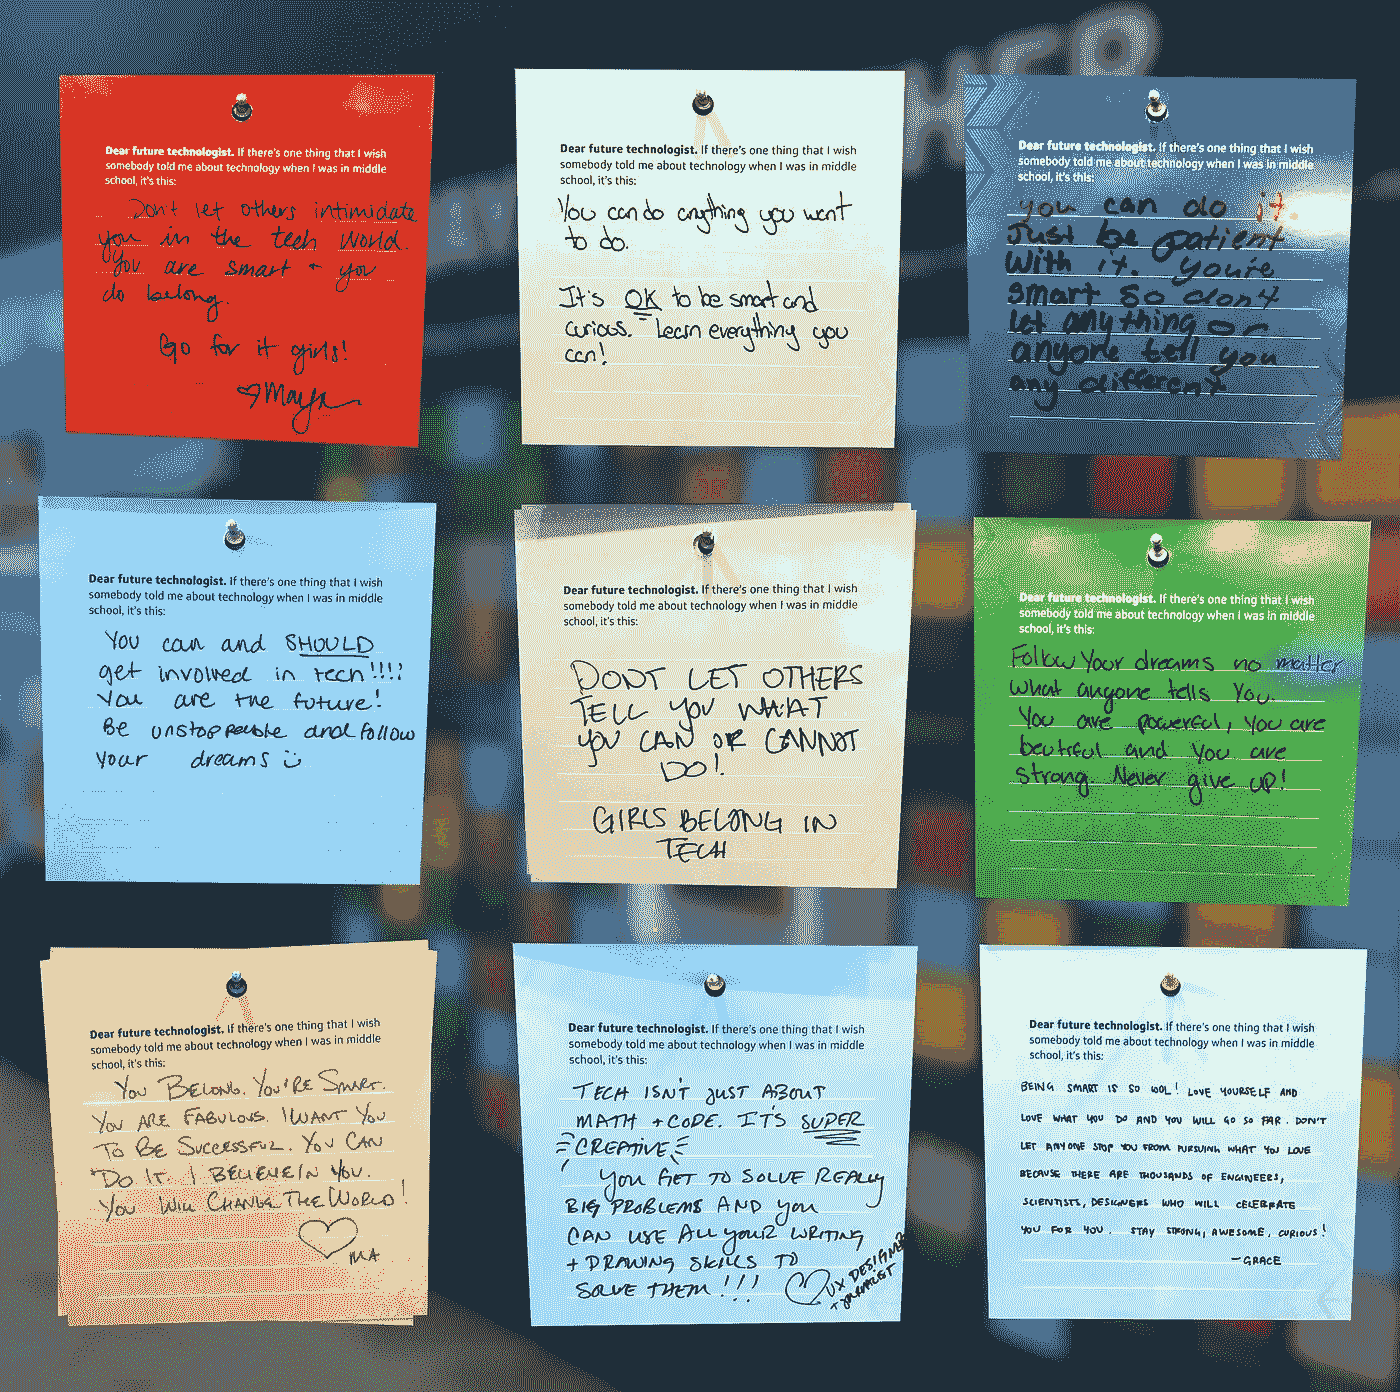 HER
Dear future technologist. If there's one thing that I wish
somebody told me about technology when I was in middle
school, it's this:
Don't let others intimidate
you in the tech world.
You are smart + you
do belong.
Go for it girls!
♡Maya
Dear future technologist. If there's one thing that I wish
somebody told me about technology when I was in middle
school, it's this:
You can do anything you want
to do.
It's OK to be smart and
curious. Learn everything you
can!
Dear future technologist. If there's one thing that I wish
somebody told me about technology when I was in middle
school, it's this:
you can do it
Just be patient
with it. you're
smart so don't
let anything or
anyone tell you
any different
Dear future technologist. If there's one thing that I wish
somebody told me about technology when I was in middle
school, it's this:
You can and SHOULD
get involved in tech!!!!
You are the future!
Be unstoppable and follow
your dreams ☺
Dear future technologist. If there's one thing that I wish
somebody told me about technology when I was in middle
school, it's this:
DON'T LET OTHERS
TELL YOU WHAT
YOU CAN OR CANNOT
DO!
GIRLS BELONG IN
TECH
Dear future technologist. If there's one thing that I wish
somebody told me about technology when I was in middle
school, it's this:
Follow your dreams no matter
what anyone tells you.
You are powerful, you are
beutiful and you are
strong. Never give up!
Dear future technologist. If there's one thing that I wish
somebody told me about technology when I was in middle
school, it's this:
YOU BELONG. YOU'RE SMART.
YOU ARE FABULOUS. I WANT YOU
TO BE SUCCESSFUL. YOU CAN
DO IT. I BELIEVE IN YOU.
YOU WILL CHANGE THE WORLD!
♡ MA
Dear future technologist. If there's one thing that I wish
somebody told me about technology when I was in middle
school, it's this:
TECH ISN'T JUST ABOUT
MATH + CODE. IT'S SUPER
CREATIVE
YOU GET TO SOLVE REALLY
BIG PROBLEMS AND YOU
CAN USE ALL YOUR WRITING
+ DRAWING SKILLS TO
SOLVE THEM!!!
♡ UX DESIGNER
+ JOURNALIST
Dear future technologist. If there's one thing that I wish
somebody told me about technology when I was in middle
school, it's this:
BEING SMART IS SO COOL! LOVE YOURSELF AND
LOVE WHAT YOU DO AND YOU WILL GO SO FAR. DON'T
LET ANYONE STOP YOU FROM PURSUING WHAT YOU LOVE
BECAUSE THERE ARE THOUSANDS OF ENGINEERS,
SCIENTISTS, DESIGNERS WHO WILL CELEBRATE
YOU FOR YOU. STAY STRONG, AWESOME, CURIOUS!
—GRACE